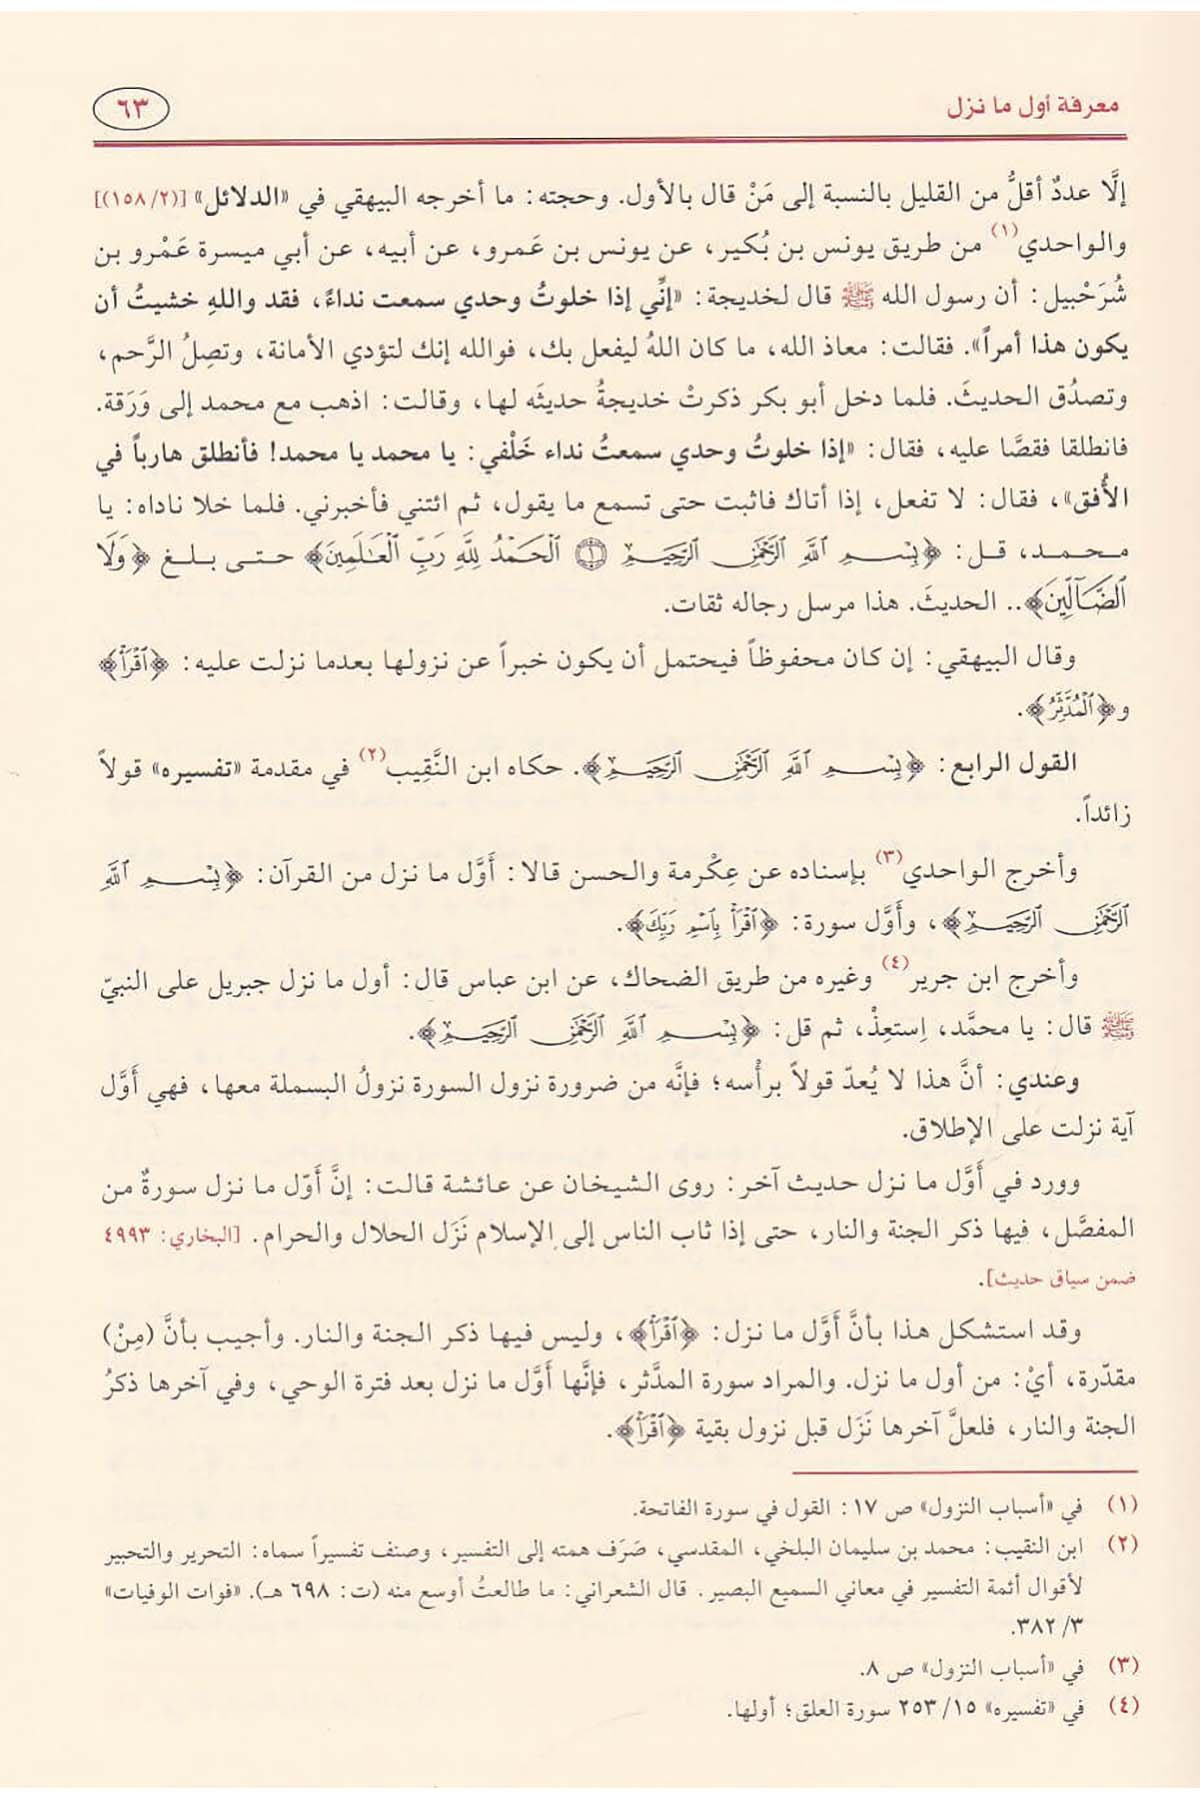 معرفة أول ما نزل
٦٣
إلَّا عددٌ أقلُّ من القليل بالنسبة إلى مَنْ قال بالأول. وحجته: ما أخرجه البيهقي في «الدلائل» [(٢/ ١٥٨)]
والواحدي(١) من طريق يونس بن بُكير، عن يونس بن عَمرو، عن أبيه، عن أبي ميسرة عَمْرو بن
شُرَحْبيل: أن رسول الله ﷺ قال لخديجة: «إنِّي إذا خلوتُ وحدي سمعت نداءً، فقد واللهِ خشيتُ أن
يكون هذا أمراً». فقالت: معاذ الله، ما كان اللهُ ليفعل بك، فوالله إنك لتؤدي الأمانة، وتصِلُ الرَّحم،
وتصدُق الحديثَ. فلما دخل أبو بكر ذكرتْ خديجةُ حديثَه لها، وقالت: اذهب مع محمد إلى وَرَقة.
فانطلقا فقصَّا عليه، فقال: «إذا خلوتُ وحدي سمعتُ نداء خَلْفي: يا محمد يا محمد! فأنطلق هارباً في
الأُفق»، فقال: لا تفعل، إذا أتاك فاثبت حتى تسمع ما يقول، ثم ائتني فأخبرني. فلما خلا ناداه: يا
محمد، قل: ﴿بِسْمِ ٱللَّهِ ٱلرَّحْمَٰنِ ٱلرَّحِيمِ ۝١ ٱلْحَمْدُ لِلَّهِ رَبِّ ٱلْعَٰلَمِينَ﴾ حتى بلغ ﴿وَلَا
ٱلضَّآلِّينَ﴾.. الحديثَ. هذا مرسل رجاله ثقات.
وقال البيهقي: إن كان محفوظاً فيحتمل أن يكون خبراً عن نزولها بعدما نزلت عليه: ﴿ٱقْرَأْ﴾
و﴿ٱلْمُدَّثِّرُ﴾.
القول الرابع: ﴿بِسْمِ ٱللَّهِ ٱلرَّحْمَٰنِ ٱلرَّحِيمِ﴾. حكاه ابن النَّقِيب(٢) في مقدمة «تفسيره» قولاً
زائداً.
وأخرج الواحدي(٣) بإسناده عن عِكْرمة والحسن قالا: أَوَّل ما نزل من القرآن: ﴿بِسْمِ ٱللَّهِ
ٱلرَّحْمَٰنِ ٱلرَّحِيمِ﴾، وأَوَّل سورة: ﴿ٱقْرَأْ بِٱسْمِ رَبِّكَ﴾.
وأخرج ابن جرير(٤) وغيره من طريق الضحاك، عن ابن عباس قال: أول ما نزل جبريل على النبيّ
ﷺ قال: يا محمَّد، اِستعِذْ، ثم قل: ﴿بِسْمِ ٱللَّهِ ٱلرَّحْمَٰنِ ٱلرَّحِيمِ﴾.
وعندي: أنَّ هذا لا يُعدّ قولاً برأْسه؛ فإنَّه من ضرورة نزول السورة نزولُ البسملة معها، فهي أَوَّل
آية نزلت على الإطلاق.
وورد في أَوَّل ما نزل حديث آخر: روى الشيخان عن عائشة قالت: إنَّ أَوّل ما نزل سورةٌ من
المفصَّل، فيها ذكر الجنة والنار، حتى إذا ثاب الناس إلى الإسلام نَزَل الحلال والحرام. [البخاري: ٤٩٩٣
ضمن سياق حديث].
وقد استشكل هذا بأنَّ أَوَّل ما نزل: ﴿ٱقْرَأْ﴾، وليس فيها ذكر الجنة والنار. وأجيب بأنَّ (مِنْ)
مقدّرة، أيْ: من أول ما نزل. والمراد سورة المدَّثر، فإنَّها أَوَّل ما نزل بعد فترة الوحي، وفي آخرها ذكرُ
الجنة والنار، فلعلَّ آخرها نَزَل قبل نزول بقية ﴿ٱقْرَأْ﴾.
(١) في «أسباب النزول» ص ١٧: القول في سورة الفاتحة.
(٢) ابن النقيب: محمد بن سليمان البلخي، المقدسي، صَرَف همته إلى التفسير، وصنف تفسيراً سماه: التحرير والتحبير
لأقوال أئمة التفسير في معاني السميع البصير. قال الشعراني: ما طالعتُ أوسع منه (ت: ٦٩٨ هـ). «فوات الوفيات»
٣/ ٣٨٢.
(٣) في «أسباب النزول» ص ٨.
(٤) في «تفسيره» ١٥/ ٢٥٣ سورة العلق؛ أولها.